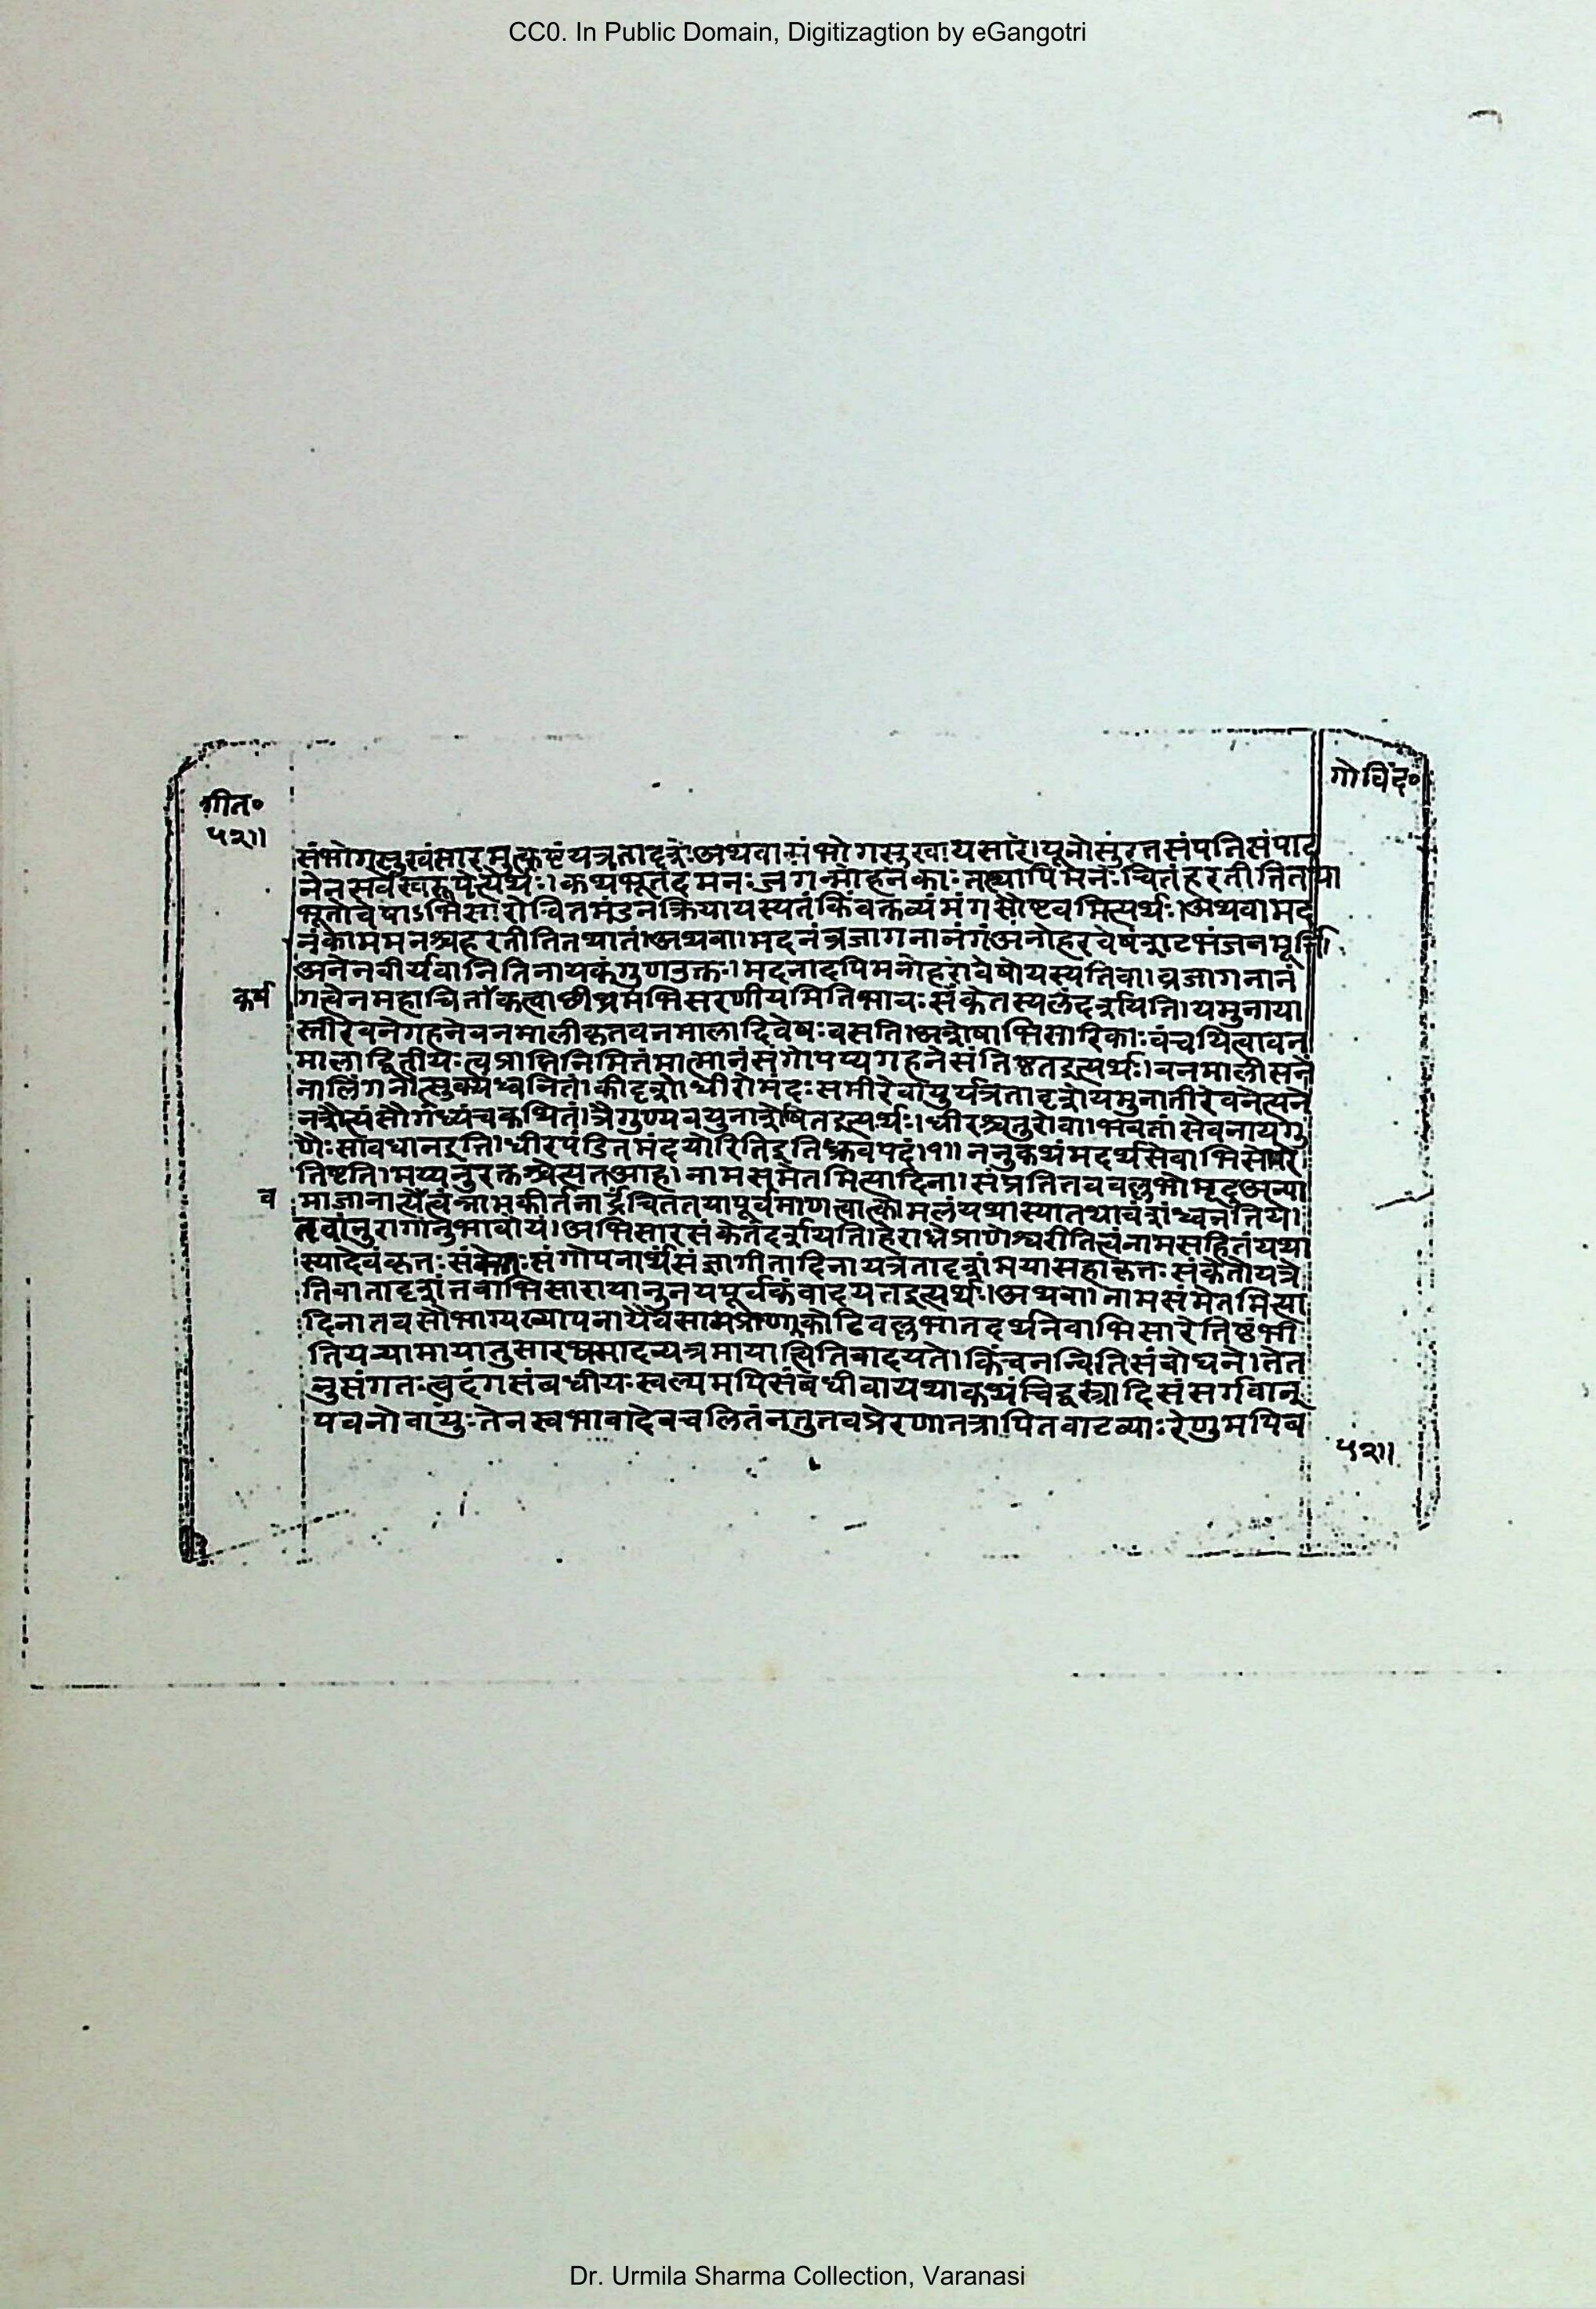 CC0. In Public Domain, Digitizagtion by eGangotri
गोविंद०
गीत०
५२॥
संभोगसुखंसारमुत्कृष्टंयत्रतादृशेअथवासंभोगसुखायसारे।पूनोसुरतसंपतिसंपाद
नेनसर्वस्वरूपेत्यर्थः।कथंभूतंदमनःजगन्मोहनकाःतस्यापिमनःचितंहरतीतितथा
भूतोवेषाऽभिसारोचितमंडनक्रियायस्यतंकिंवक्तव्यंमंगसौष्टवमित्यर्थः।अथवामद
नंकोममनश्चहरतीतितथातं।अथवा।मदनंव्रजागनानंगंअनोहरवेषं
अनेनवीर्यवानितिनायकंगुणउक्तः।मदनादपिमनोहरोवेषोयस्येतिवा।व्रजागनानं
कर्ष
गत्वेनमहाचिताभिसरणीयमितिभावःसंकेतस्थलंदर्शयिति।यमुनाया
स्तीरेवनेगहनेवनमालीकृतवनमालादिवेषःवसति।अशेषाभिसारिकाःवंचयित्वावन
मालाद्वितीयःत्वप्राप्तिनिमित्तंमात्मानंसंगोपय्यगहनेसंतिष्ठतइत्यर्थः।वनमालीसने
नालिंगनौत्सुक्यंध्वनितं।कीदृशे।धीरोमंदःसमीरेवायुर्यत्रतादृशेयमुनातीरेवनेत्यने
नशैत्यंसौगंध्यंचकथितं।त्रैगुण्यवयुनाशेषितइत्यर्थः।धीरश्चतुरोवा।भवतांसेवनायगु
णैःसावधानइति।धीरपंडितमंदयोरितिइतिध्रुवपदं।१॥ननुकथंमदर्थसेवाभिसारे
तिष्टति।मय्यनुरक्तश्चेत्सतआह।नामसमेतमित्यादिना।संप्रतितववल्लभोमृदुअल्पा
व
माज्ञानात्येत्वंन्नामकीर्तनार्द्रचितंतयापूर्वमाणत्वात्कोमलंयथास्यातथावंशंध्वनंतिये।
तवांनुरागानुभावोयं।अभिसारसंकेतंदर्शयति।हेराधेप्राणेश्वरीतित्वंनामसहितंयथा
स्यादेवंकृतःसंकेतःसंगोपनार्थसंज्ञागीतादिनायत्रतादृशंमयासहाकृतःसंकेतोयत्रे
तिवातादृशंतवाभिसारायानुनयपूर्वकंवादयतइत्यर्थः।अथवा।नामसमेतमित्या
दिनातवसौभाग्यख्यापनायैवंसामप्राणाकोटिवल्लभातदर्थनिवाभिसारेतिष्टंभी
किंचनन्वितिसंबोधने।तेत
नुसंगतःत्वदंगसंबधीयःस्वल्पमपिसंबंधीवायथाकथंचिद्वस्त्रादिसंसर्गवान्
पवनोवायुःतेनस्वभावादेवचलितंनतुतवप्रेरणातत्रापितवाटव्याःरेणुमपिब
५२॥
Dr. Urmila Sharma Collection, Varanasi